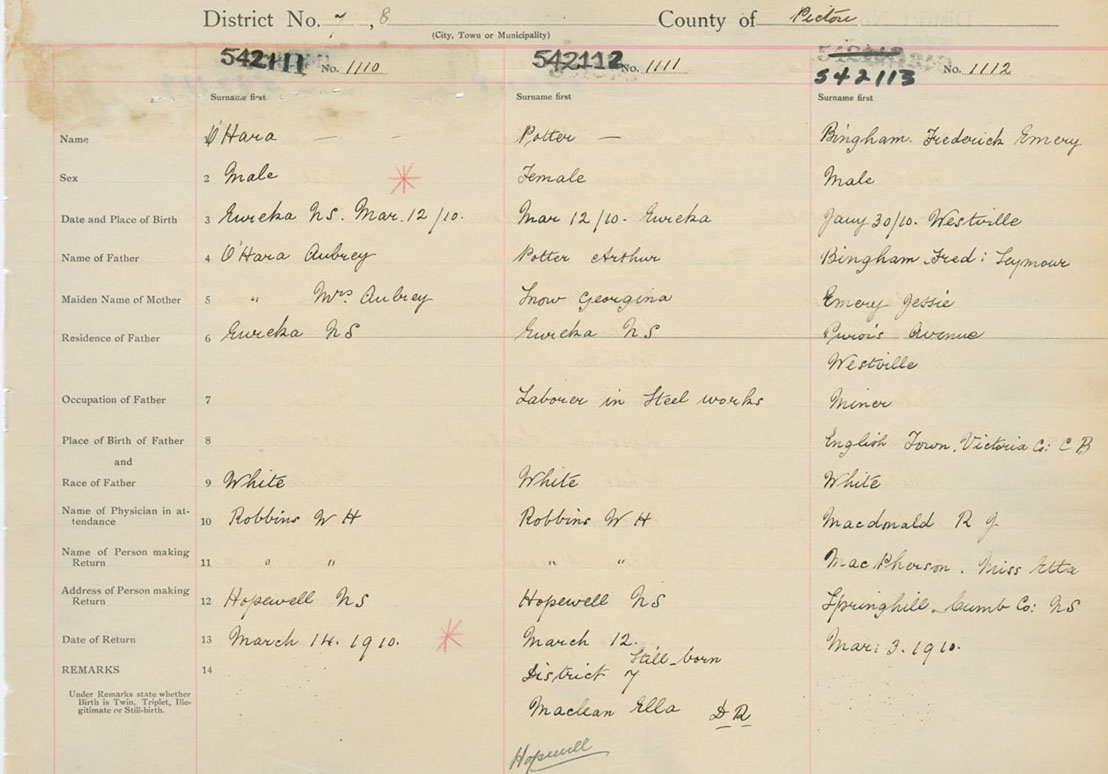 District No. 7, 8 County of Pictou
(City, Town or Municipality)
542111 No. 1110 542112 No. 1111 542113 No. 1112
Surname first Surname first Surname first
Name O'Hara — - Potter — Bingham. Frederick Emery
Sex 2 Male Female Male
Date and Place of Birth 3 Eureka NS. Mar. 12/10. Mar 12/10. Eureka Jany 30/10. Westville
Name of Father 4 O'Hara Aubrey Potter Arthur Bingham Fred: Seymour
Maiden Name of Mother 5 " Mrs Aubrey Snow Georgina Emery Jessie
Residence of Father 6 Eureka NS Eureka NS Avenue
Westville
Occupation of Father 7 Laborer in Steel works Miner
Place of Birth of Father 8 English Town. Victoria Co: C B
and
Race of Father 9 White White White
Name of Physician in at-
tendance 10 Robbins W H Robbins W H Macdonald R J
Name of Person making
Return 11 " " " " MacPherson. Miss Etta
Address of Person making
Return 12 Hopewell NS Hopewell NS Springhill. Cumb Co: NS
Date of Return 13 March 14. 1910. March 12. Mar: 3. 1910.
REMARKS 14 Still-born
District 7
Under Remarks state whether
Birth is Twin, Triplet, Ille-
gitimate or Still-birth.
Maclean Ella D R
Hopewell